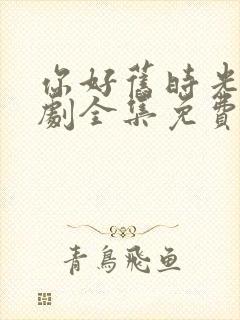 你好舊時光
劇全集免費
青鳥飛魚